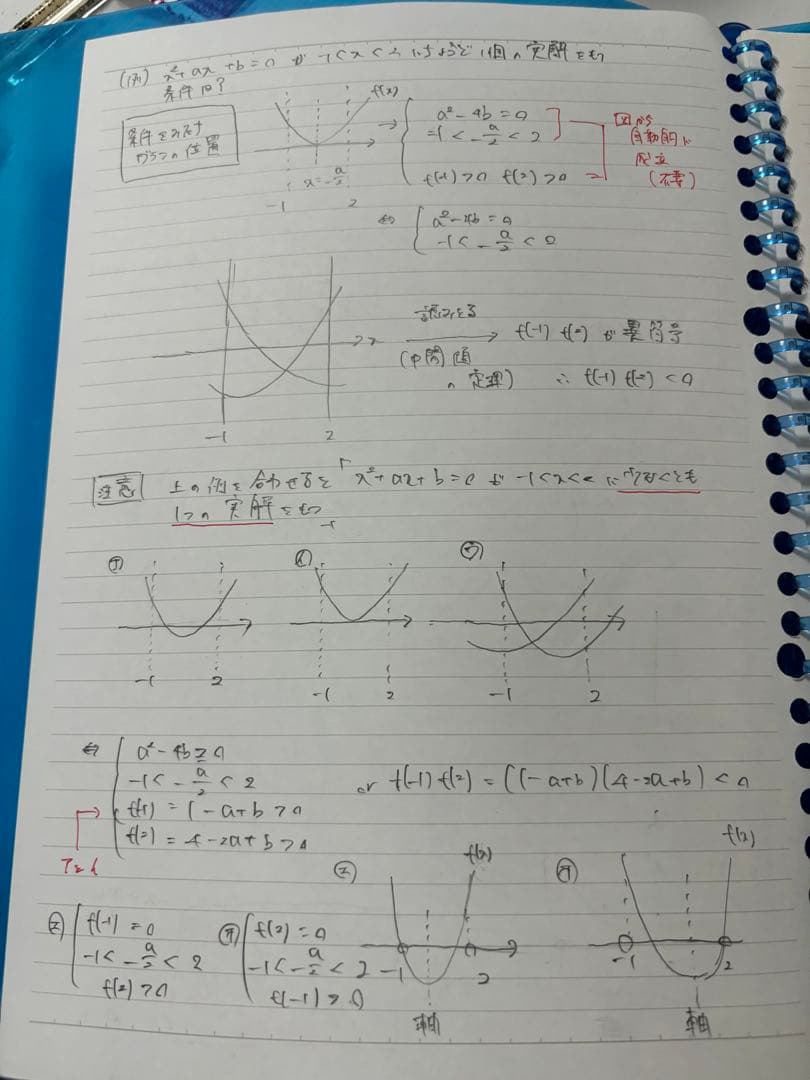 (例) x²+ax+b=0 が -1<x<2 にちょうど1個の実解をもつ
条件は?
条件をみたす
グラフの位置
f(x)
x=-a/2
-1
2
a²-4b=0
-1<-a/2<2
f(-1)>0 f(2)>0
図から
自動的に
成立
(不要)
⇔ a²-4b=0
-1<-a/2<2
x
-1
2
(中間値
の定理)
f(-1) f(2) が異符号
∴ f(-1) f(2) <0
注意 上の例を合わせると「x²+ax+b=0 が -1<x<2 に少なくとも
1つの実解をもつ」
ア
イ
ウ
-1
2
-1
2
-1
2
⇔ a²-4b≧0
-1<-a/2<2
f(-1)=1-a+b>0
f(2)=4-2a+b>0
アとイ
or f(-1) f(2) = (1-a+b)(4-2a+b)<0
エ f(-1)=0
-1<-a/2<2
f(2)>0
オ f(2)=0
-1<-a/2<2
f(-1)>0
エ
f(x)
-1
2
軸
オ
f(x)
-1
2
軸